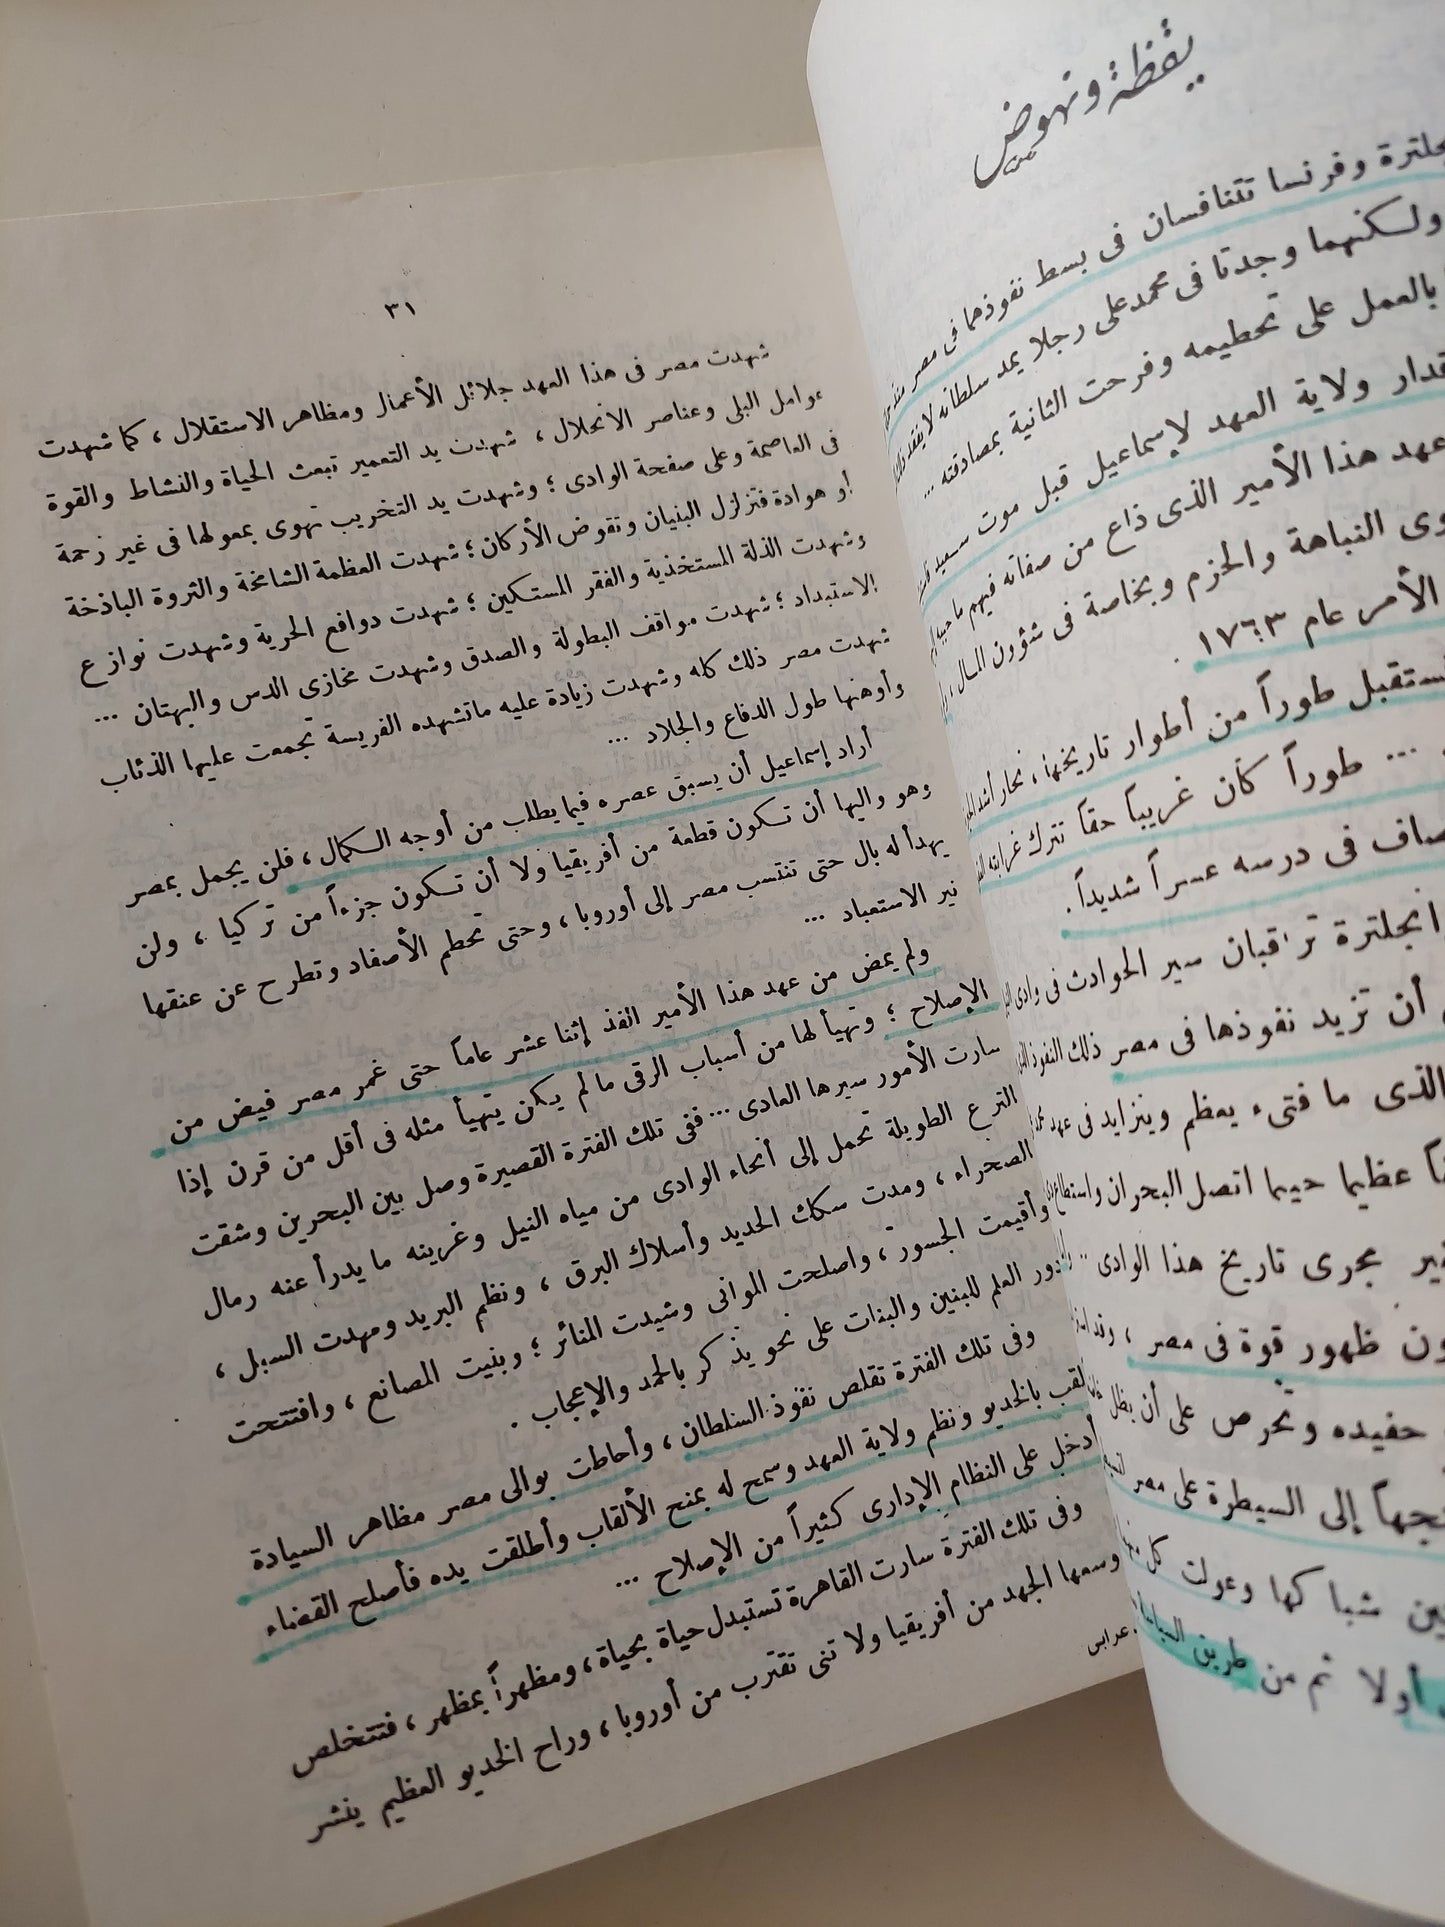 يقظة ونهوض
وفرنسا تتنافسان فى بسط نفوذهما فى مصر منذ
ولكنهما وجدتا فى محمد على رجلا يمد سلطانه
بالعمل على تحطيمه وفرحت الثانية بمصادقته ...
ولاية العهد لإسماعيل قبل موت سعيد
عهد هذا الأمير الذى ذاع من صفاته فيهم ما
النباهة والحزم وبخاصة فى شؤون المال
الأمر عام ١٧٦٣ .
طوراً من أطوار تاريخها ، نحار أشد
... طوراً كان غريباً حقاً تترك غرابته
فى درسه عسراً شديداً .
تراقبان سير الحوادث فى وادى
أن تزيد نفوذها فى مصر ذلك النفوذ
الذى ما فتىء يعظم ويتزايد فى عهد
عظيما حينما اتصل البحران واستطاع
مجرى تاريخ هذا الوادى ..
ظهور قوة فى مصر ، وقد
حفيده وتحرص على أن يظل
إلى السيطرة على مصر
شباكها وعولت كل
أولا ثم من طريق السياسة
٣١
شهدت مصر فى هذا العهد جلائل الأعمال ومظاهر الاستقلال ، كما شهدت
عوامل البلى وعناصر الانحلال ، شهدت يد التعمير تبعث الحياة والنشاط والقوة
فى العاصمة وعلى صفحة الوادى ؛ وشهدت يد التخريب تهوى بمعولها فى غير رحمة
أو هوادة فتزلزل البنيان وتقوض الأركان ؛ شهدت العظمة الشامخة والثروة الباذخة
وشهدت الذلة المستخذية والفقر المستكين ؛ شهدت دوافع الحرية وشهدت نوازع
الاستبداد ؛ شهدت مواقف البطولة والصدق وشهدت مخازى الدس والبهتان ...
شهدت مصر ذلك كله وشهدت زيادة عليه ما تشهده الفريسة تجمعت عليها الذئاب
وأوهنها طول الدفاع والجلاد ...
أراد إسماعيل أن يسبق عصره فيما يطلب من أوجه الكمال ، فلن يجمل بمصر
وهو واليها أن تكون قطعة من أفريقيا ولا أن تكون جزءاً من تركيا ، ولن
يهدأ له بال حتى تنتسب مصر إلى أوروبا ، وحتى تحطم الأصفاد وتطرح عن عنقها
نير الاستعباد ...
ولم يمض من عهد هذا الأمير الفذ إثنا عشر عاماً حتى غمر مصر فيض من
الإصلاح ؛ وتهيأ لها من أسباب الرقى ما لم يكن يتهيأ مثله فى أقل من قرن إذا
سارت الأمور سيرها العادى ... ففى تلك الفترة القصيرة وصل بين البحرين وشقت
الترع الطويلة تحمل إلى أنحاء الوادى من مياه النيل وغرينه ما يدرأ عنه رمال
الصحراء ، ومدت سكك الحديد وأسلاك البرق ، ونظم البريد ومهدت السبل ،
وأقيمت الجسور ، واصلحت الموانى وشيدت المنائر ؛ وبنيت المصانع ، وافتتحت
دور العلم للبنين والبنات على نحو يذكر بالحمد والإعجاب .
وفى تلك الفترة تقلص نفوذ السلطان ، وأحاطت بوالى مصر مظاهر السيادة
لقب بالخديو ونظم ولاية العهد وسمح له بمنح الألقاب وأطلقت يده فأصلح القضاء
أدخل على النظام الإدارى كثيراً من الإصلاح ...
وفى تلك الفترة سارت القاهرة تستبدل حياة بحياة ، ومظهراً بمظهر ، فتتخلص
وسعها الجهد من أفريقيا ولا تنى تقترب من أوروبا ، وراح الخديو العظيم ينشر
عرابى